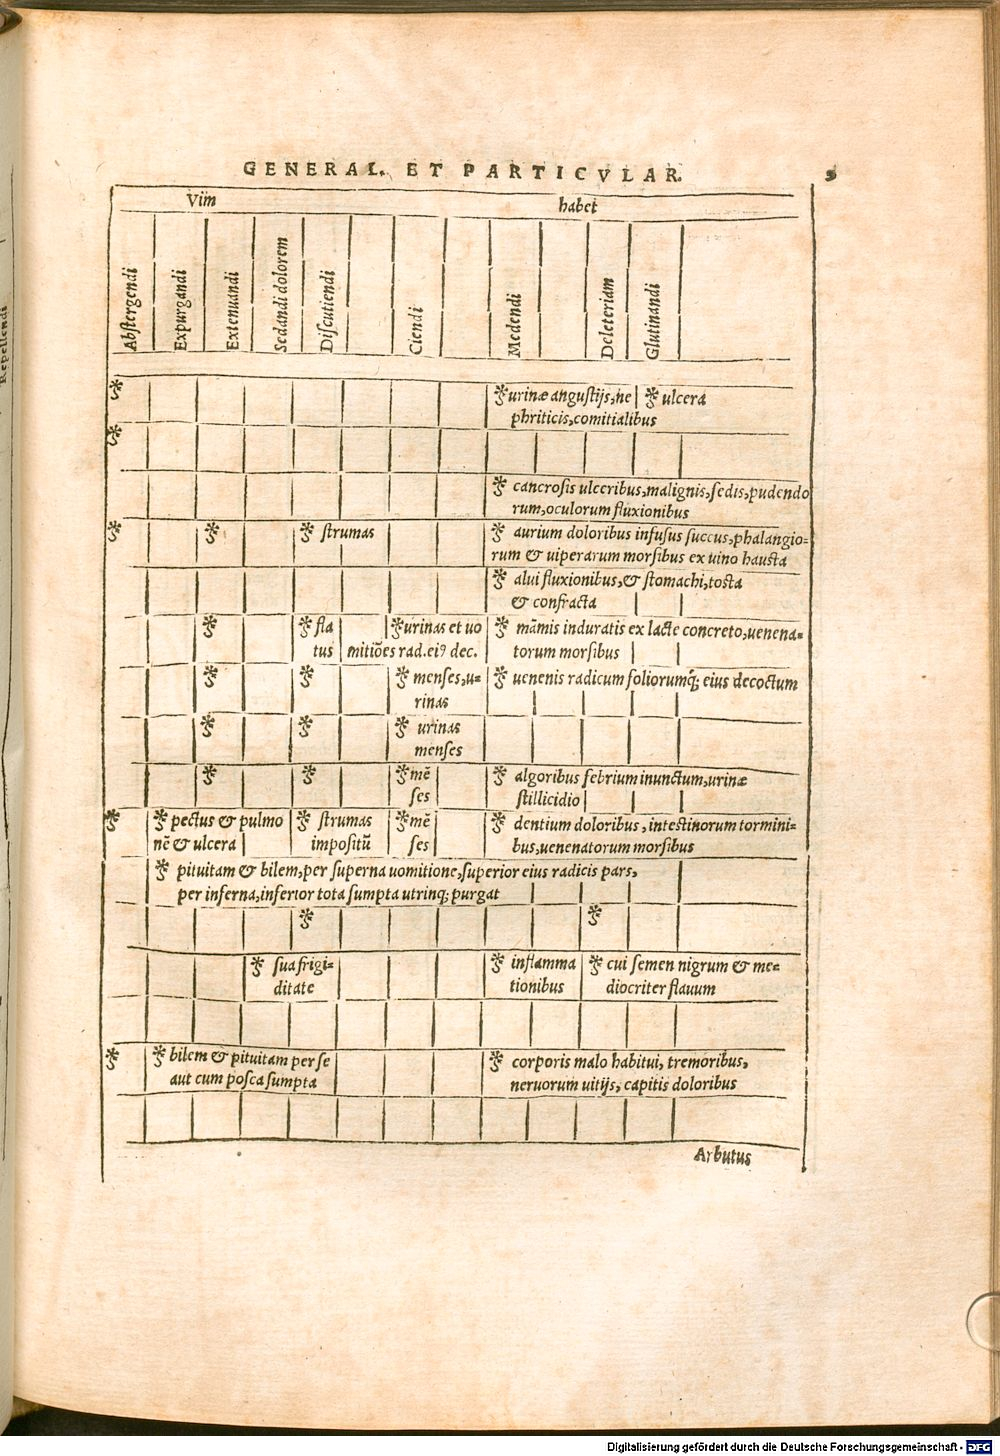 GENERAL. ET PARTICVLAR. 5
Vim habet
Abstergendi
Expurgandi
Extenuandi
Sedandi dolorem
Discutiendi
Ciendi
Medendi
Deleteriam
Glutinandi
Repellendi
urinæ angustijs, ne ulcera
phriticis, comitialibus
cancrosis ulceribus, malignis, sedis, pudendo
rum, oculorum fluxionibus
strumas aurium doloribus infusus succus, phalangio=
rum & uiperarum morsibus ex uino hausta
alui fluxionibus, & stomachi, tosta
& confracta
fla urinas et uo mãmis induratis ex lacte concreto, uenena=
tus mitiões rad. ei⁹ dec. torum morsibus
menses, u= uenenis radicum foliorumq; eius decoctum
rinas
urinas
menses
mẽ algoribus febrium inunctum, urinæ
ses stillicidio
pectus & pulmo strumas mẽ dentium doloribus, intestinorum tormini=
nẽ & ulcera impositũ ses bus, uenenatorum morsibus
pituitam & bilem, per superna uomitione, superior eius radicis pars,
per inferna, inferior tota sumpta utrinq; purgat
sua frigi= inflamma cui semen nigrum & me=
ditate tionibus diocriter flauum
bilem & pituitam per se corporis malo habitui, tremoribus,
aut cum posca sumpta neruorum uitijs, capitis doloribus
Arbutus
Digitalisierung gefördert durch die Deutsche Forschungsgemeinschaft - DFG